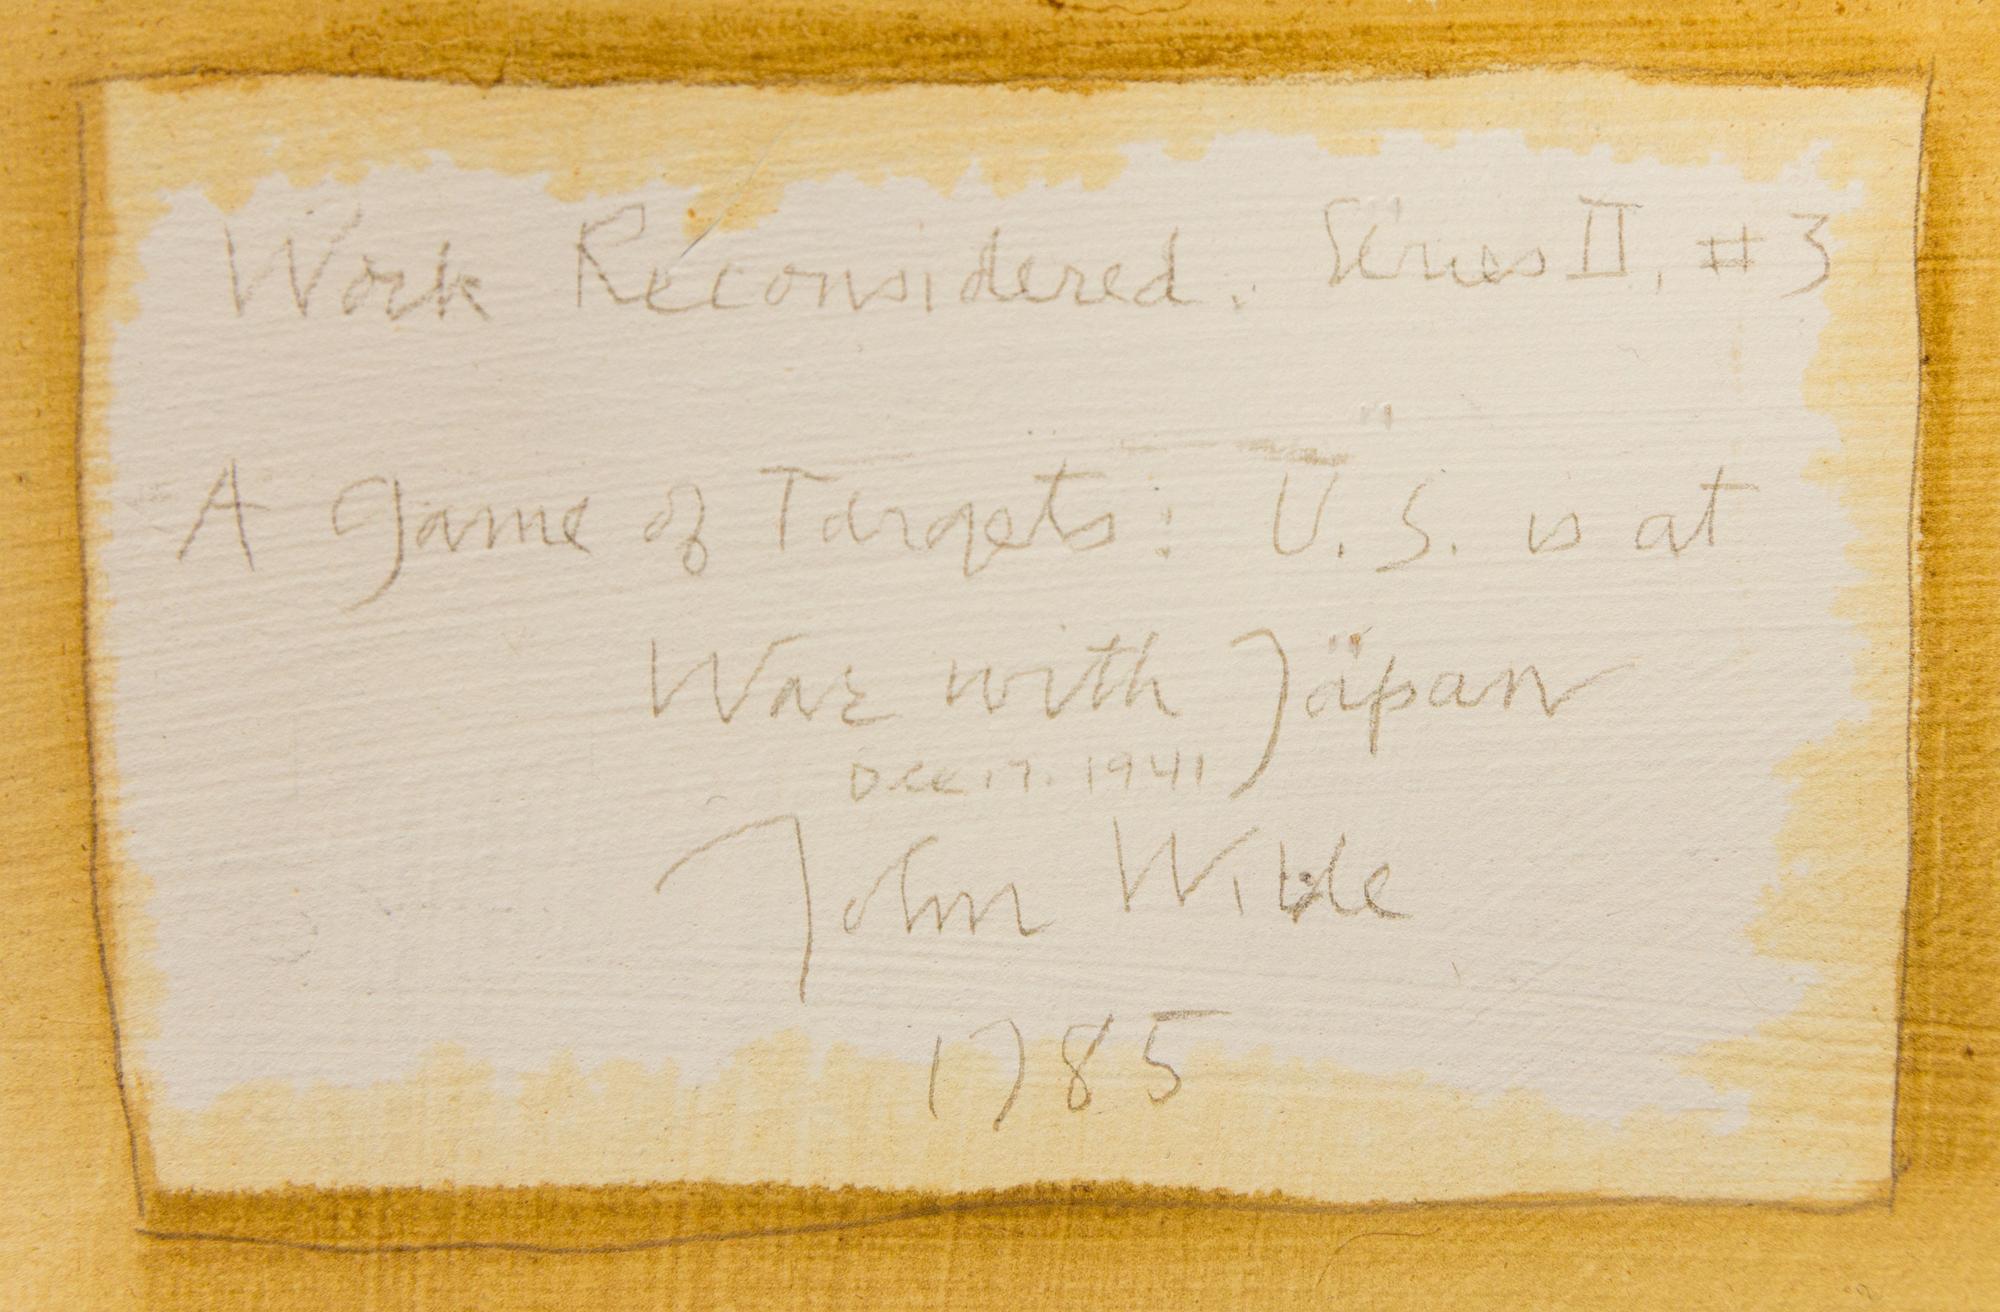 Work Reconsidered. Series II, #3
A Game of Targets: U.S. is at
War with Japan
Dec 17. 1941
John Wilde
1985